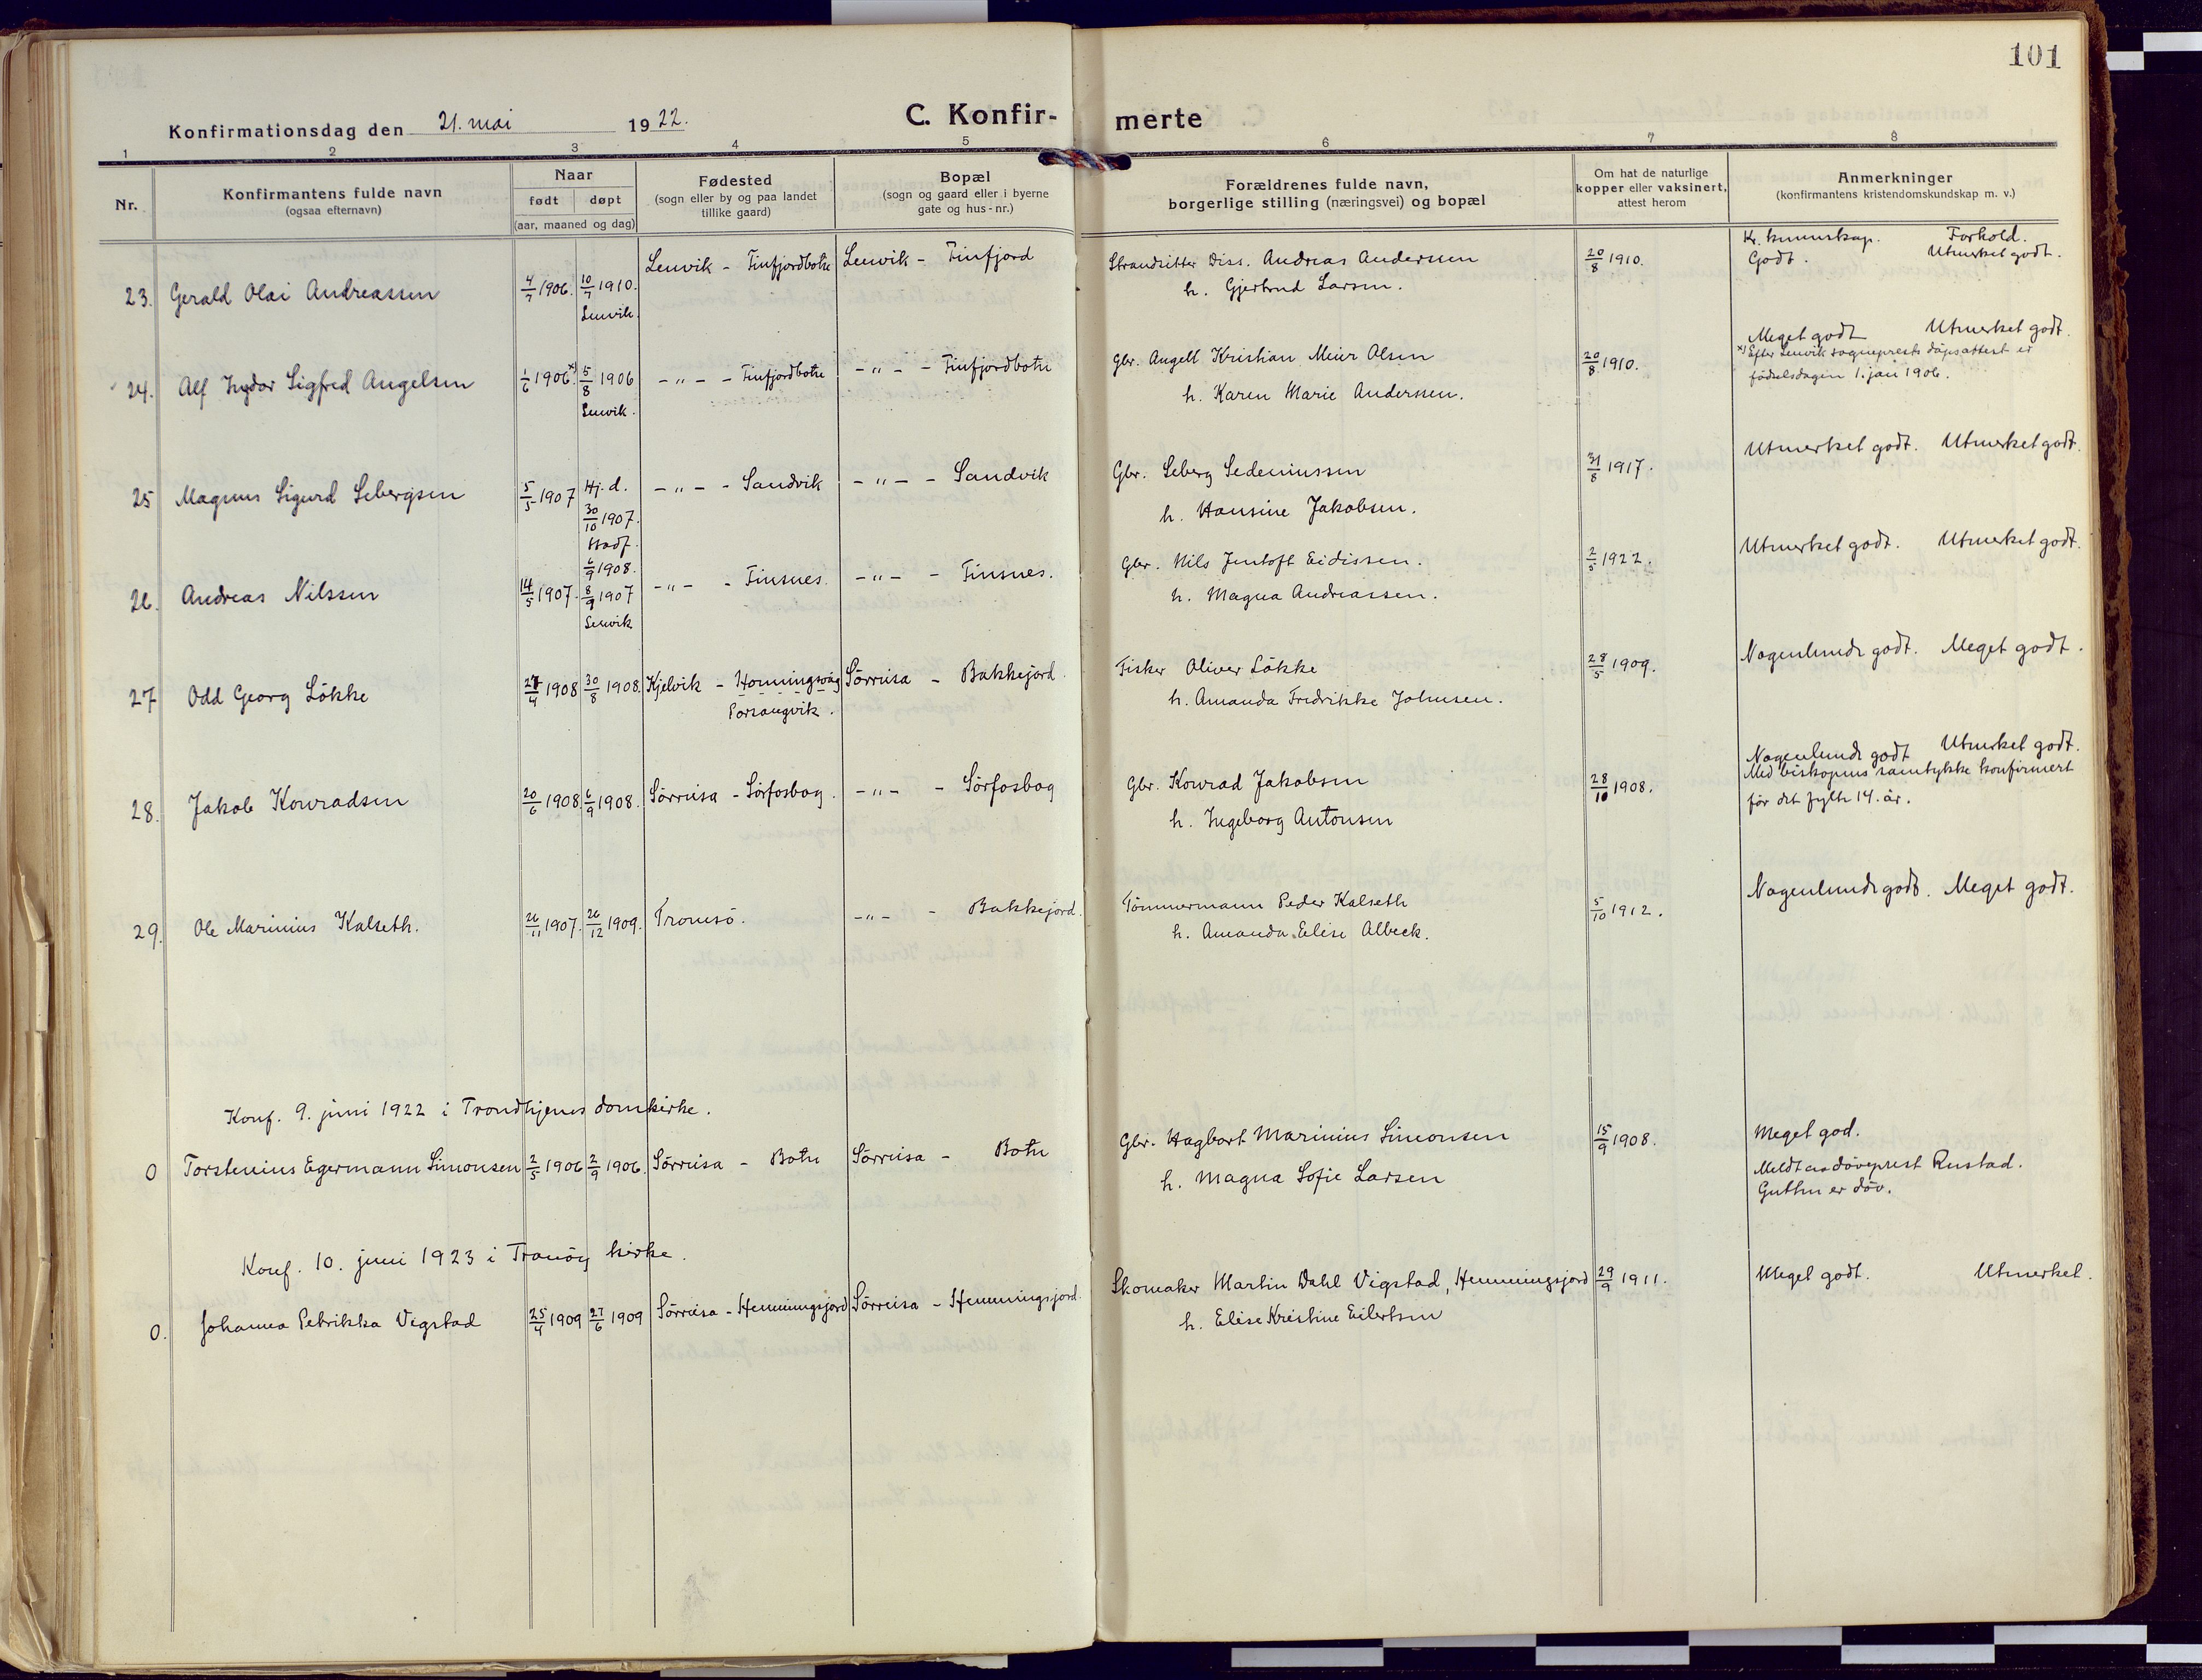 101
Konfirmationsdag den 21. mai 1922.
C. Konfir- merte
1 2 3 4 5 6 7 8
Nr.
Konfirmantens fulde navn
(ogsaa efternavn)
Naar
født døpt
(aar, maaned og dag)
Fødested
(sogn eller by og paa landet
tillike gaard)
Bopæl
(sogn og gaard eller i byerne
gate og hus-nr.)
Forældrenes fulde navn,
borgerlige stilling (næringsvei) og bopæl
Om hat de naturlige
kopper eller vaksinert,
attest herom
Anmerkninger
(konfirmantens kristendomskundskap m. v.)
Kr. kunnskap. Forhold.
23. Gerald Olai Andreassen 4/7 1906. 10/7 1910. Lenvik. Lenvik - Finfjordbotn Lenvik - Finfjord Strandsitter Diss. Andreas Anderssen 20/8 1910. Godt. Utmerket godt.
h. Gjertrud Larsen.
24. Alf Ingdar Sigfred Angelsen 1/6 1906 x) 5/8 1906 Lenvik. -"- - Finfjordbotn -"- - Finfjordbotn Gbr. Angell Kristian Meier Olsen 20/8 1910. Meget godt Utmerket godt.
h. Karen Marie Anderssen.
x) Efter Lenvik sogneprests dåpsattest er
fødselsdagen 1. jan 1906.
25 Magnus Sigurd Sebergsen 5/5 1907 Hj. d. 30/10 1907. Stadf. 6/9 1908. -"- - Sandvik -"- - Sandvik Gbr. Seberg Sedeniussen 31/8 1917. Utmerket godt. Utmerket godt.
h. Hansine Jakobsen.
26. Andreas Nilssen 14/5 1907. 8/9 1907 Lenvik -"- - Finsnes. -"- - Finsnes. Gbr. Nils Jentoft Eidissen. 2/5 1922. Utmerket godt. Utmerket godt.
h. Magna Andreassen.
27 Odd Georg Løkke 27/4 1908 30/8 1908. Kjelvik - Honningsvåg Porsangvik. Sørreisa - Bakkejord. Fisker Oliver Løkke 28/5 1909. Nogenlunde godt. Meget godt.
h. Amanda Fredrikke Johnsen.
28. Jakob Konradsen 20/6 1908 6/9 1908. Sørreisa - Sørfosbog. -"- - Sørfosbog Gbr. Konrad Jakobsen 28/10 1908. Nogenlunde godt Utmerket godt.
h. Ingeborg Antonsen
Med biskopens samtykke konfirmert
før det fylte 14. år.
29. Ole Marinius Kalseth. 26/11 1907. 26/12 1909. Tromsø. -"- - Bakkejord. Tømmermann Peder Kalseth 5/10 1912. Nogenlunde godt. Meget godt.
h. Amanda Elise Albeck.
Konf. 9. juni 1922 i Trondhjems domkirke.
0 Torstenius Egermann Simonsen 2/5 1906 2/9 1906. Sørreisa - Botn Sørreisa - Botn Gbr. Hagbart Marinius Simonsen 15/9 1908. Meget god.
h. Magna Sofie Larsen
Meldt av døveprest Rustad.
Gutten er døv.
Konf. 10. juni 1923 i Tranøy kirke.
0. Johanna Petrikka Vigstad 25/4 1909 27/6 1909 Sørreisa - Hemmingsjord Sørreisa - Hemmingsjord. Skomaker Martin Dahl Vigstad, Hemmingsjord 29/9 1911. Meget godt. Utmerket.
h. Elise Kristine Eilertsen